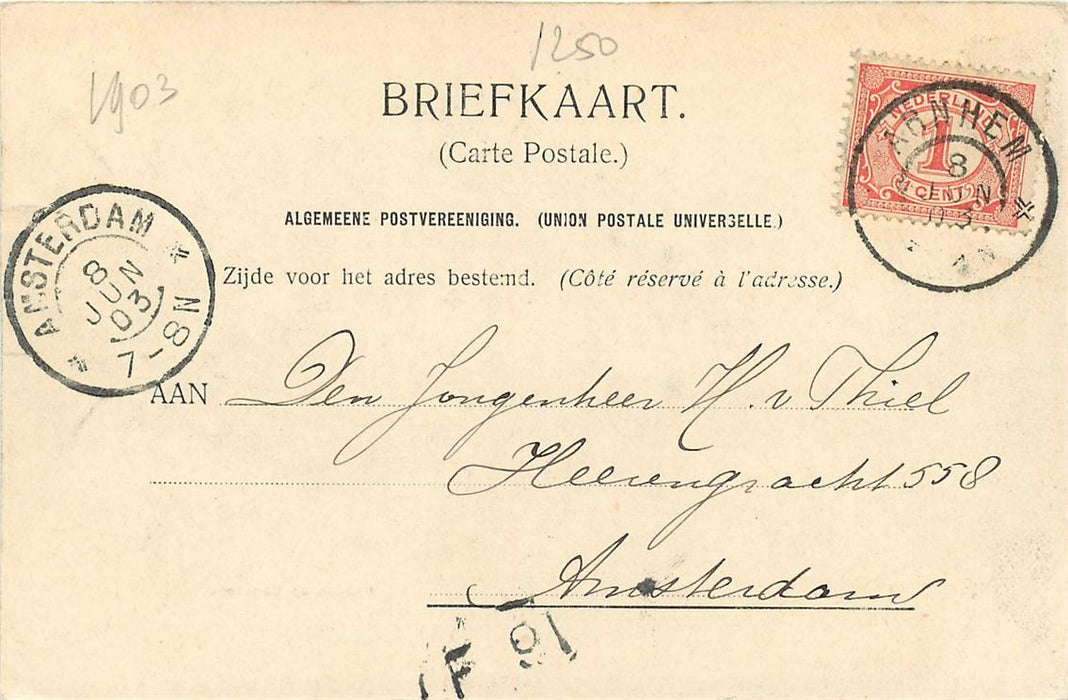 1250
1903
BRIEFKAART.
(Carte Postale.)
NEDERLAND
1
CENT
ARNHEM
8
JUN
03
N
ALGEMEENE POSTVEREENIGING. (UNION POSTALE UNIVERSELLE.)
AMSTERDAM
8
JUN
03
7-8N
Zijde voor het adres bestemd. (Côté réservé à l'adresse.)
AAN Den Jongenheer H. v Thiel
Heerengracht 558
Amsterdam